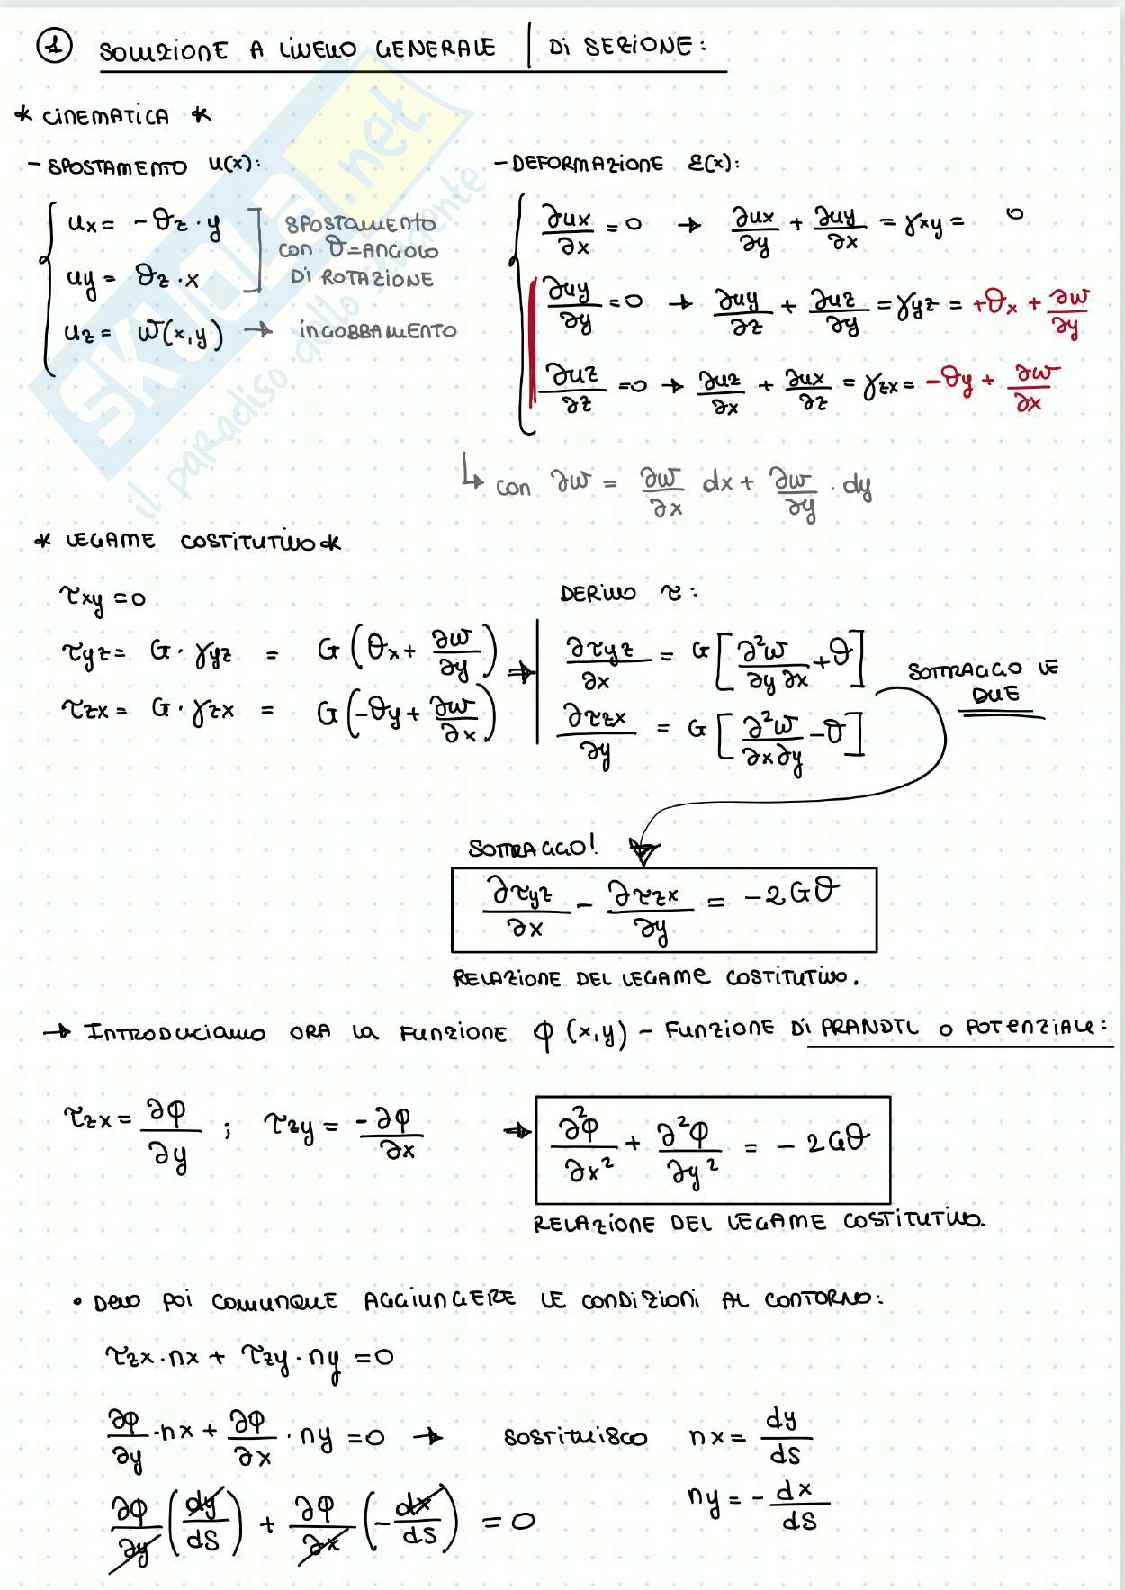 ① SOLUZIONE A LIVELLO GENERALE | DI SEZIONE:
* CINEMATICA *
- SPOSTAMENTO u(x):
ux = -ϑz · y
uy = ϑz · x
SPOSTAMENTO
CON ϑ=ANGOLO
DI ROTAZIONE
uz = w(x,y) → INGOBBAMENTO
- DEFORMAZIONE ε(x):
∂ux/∂x = 0 → ∂ux/∂y + ∂uy/∂x = γxy = 0
∂uy/∂y = 0 → ∂uy/∂z + ∂uz/∂y = γyz = +ϑx + ∂w/∂y
∂uz/∂z = 0 → ∂uz/∂x + ∂ux/∂z = γzx = -ϑy + ∂w/∂x
↳ con ∂w = ∂w/∂x dx + ∂w/∂y · dy
* LEGAME COSTITUTIVO *
τxy = 0
τyz = G · γyz = G(ϑx + ∂w/∂y)
τzx = G · γzx = G(-ϑy + ∂w/∂x)
⇒
DERIVO τ:
∂τyz/∂x = G[∂²w/∂y∂x + ϑ]
∂τzx/∂y = G[∂²w/∂x∂y - ϑ]
SOTTRAGGO LE
DUE
SOTTRAGGO!
∂τyz/∂x - ∂τzx/∂y = -2Gϑ
RELAZIONE DEL LEGAME COSTITUTIVO.
→ INTRODUCIAMO ORA LA FUNZIONE φ(x,y) - FUNZIONE DI PRANDTL O POTENZIALE:
τzx = ∂φ/∂y ; τzy = -∂φ/∂x → ∂²φ/∂x² + ∂²φ/∂y² = -2Gϑ
RELAZIONE DEL LEGAME COSTITUTIVO.
• DEVO POI COMUNQUE AGGIUNGERE LE CONDIZIONI AL CONTORNO:
τzx · nx + τzy · ny = 0
∂φ/∂y · nx + ∂φ/∂x · ny = 0 → SOSTITUISCO nx = dy/ds
ny = -dx/ds
∂φ/∂y (dy/ds) + ∂φ/∂x (-dx/ds) = 0
SKUOLA.net
il paradiso dello studente